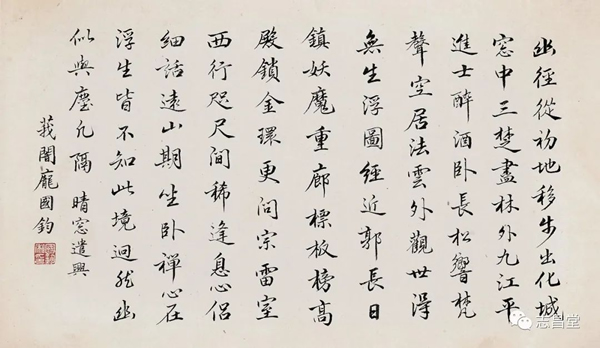 幽徑從初地移步出化城
窓中三楚盡林外九江平
進士醉酒臥長松響梵
聲空居法雲外觀世淂
無生浮圖經近郭長日
鎮妖魔重廊標板榜高
殿鎖金環更問宗雷室
西行咫尺間稀逢息心侶
細話遠山期坐臥禪心在
浮生皆不知此境迥然幽
似與塵凡隔 晴窓遣興
莪闇龐國鈞
志昌堂